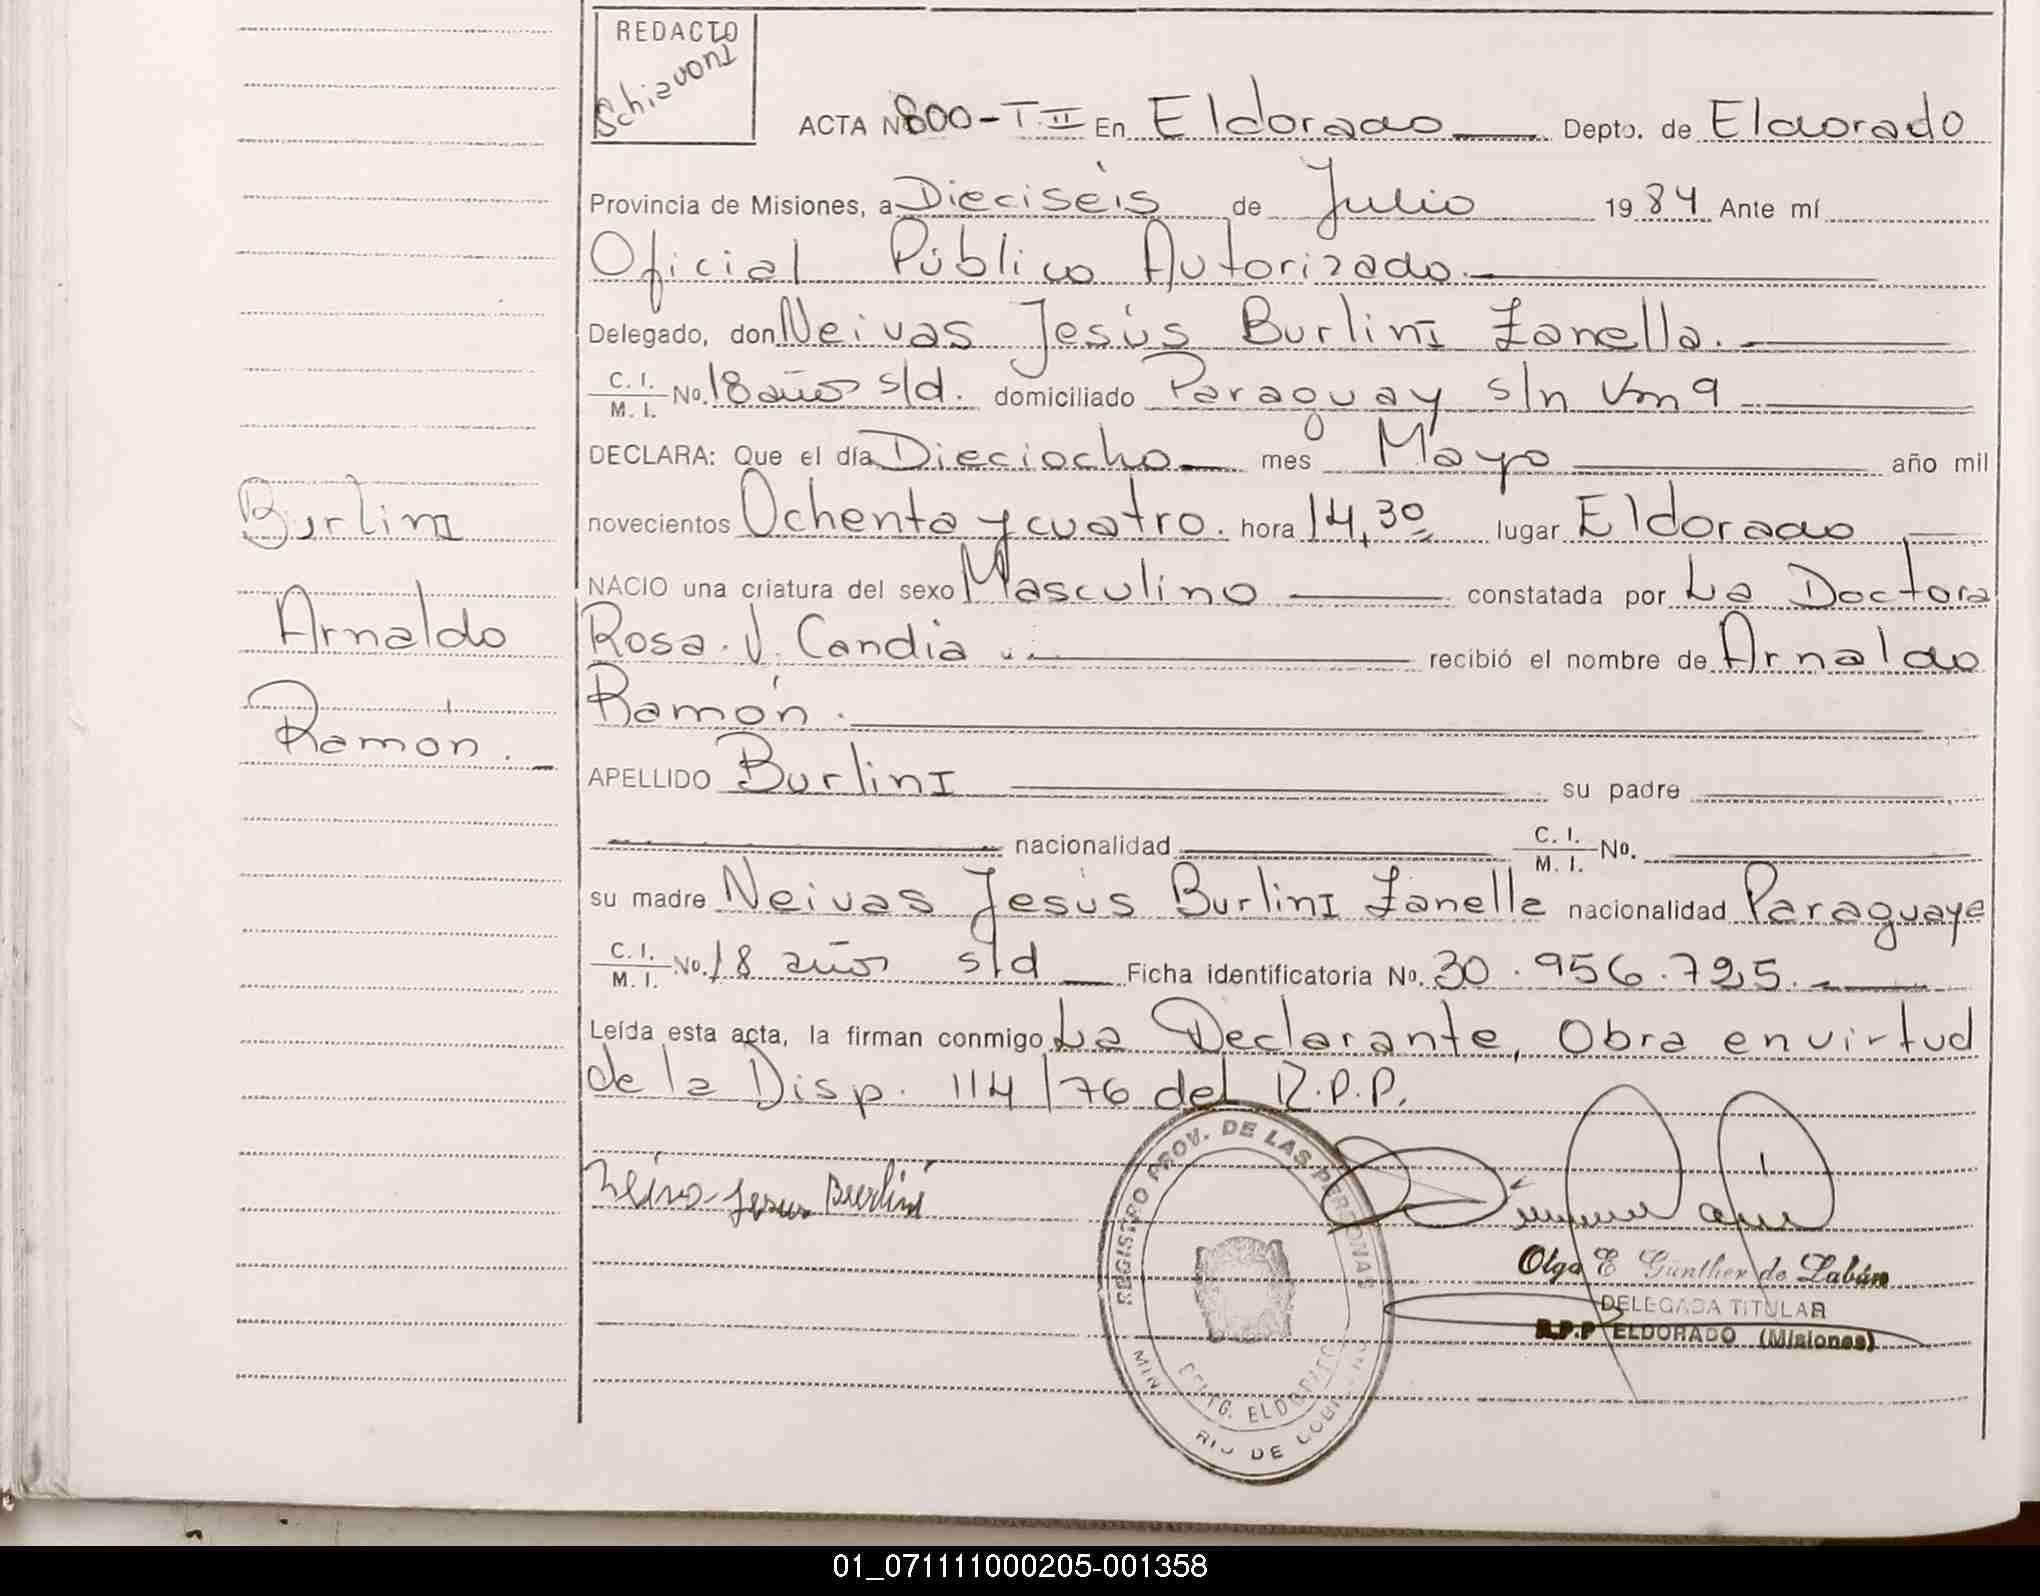 REDACTO
Schiavoni
ACTA Nº 800-T II En Eldorado Depto. de Eldorado
Provincia de Misiones, a Dieciséis de Julio 1984 Ante mí
Oficial Público Autorizado.
Delegado, don Neivas Jesús Burlini Zanella.
C. I. / M. I. No. 18 años s/d. domiciliado Paraguay s/n Km 9
DECLARA: Que el día Dieciocho mes Mayo año mil
novecientos Ochenta y cuatro. hora 14,30 lugar Eldorado
NACIO una criatura del sexo Masculino constatada por La Doctora
Rosa. J. Candia .. recibió el nombre de Arnaldo
Ramón.
APELLIDO Burlini su padre
nacionalidad C. I. / M. I. No.
su madre Neivas Jesús Burlini Zanella nacionalidad Paraguaya
C. I. / M. I. No. 18 años s/d Ficha identificatoria No. 30.956.725.
Leída esta acta, la firman conmigo La Declarante, Obra en virtud
de la Disp. 114/76 del R.P.P.
Burlini
Arnaldo
Ramón.
Jesus Burlini
REGISTRO PROV. DE LAS PERSONAS
DELEG. ELDORADO
MIN RIO DE GOBIERNO
Olga E Gunther de Labán
DELEGADA TITULAR
R.P.P ELDORADO (Misiones)
01_071111000205-001358